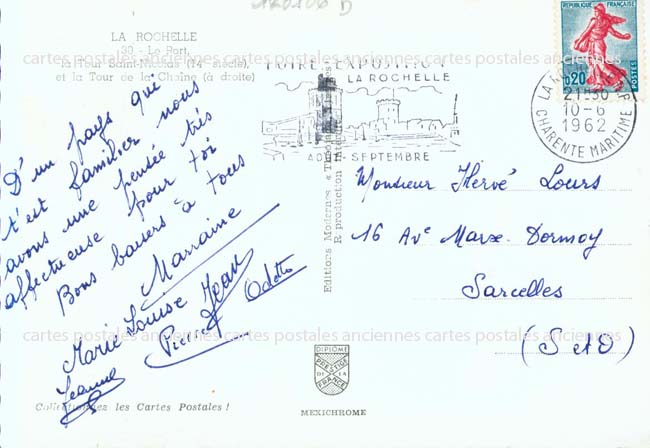 120106 D
LA ROCHELLE
30 - Le Port,
la Tour Saint-Nicolas (14e siècle),
et la Tour de la Chaîne (à droite)
D'un pays qui
t'est familier nous
avons une pensée très
affectueuse pour toi
Bons baisers à tous
Marraine
Marie Louise Jean
Pierre Odette
Jeanne
Collectionnez les Cartes Postales !
FOIRE-EXPOSITION
LA ROCHELLE
AOUT-SEPTEMBRE
Editions Modernes
Reproduction
DIPLÔME
PRESTIGE
DE LA
FRANCE
MEXICHROME
REPUBLIQUE FRANÇAISE
0,20
POSTES
LA
21H30
10-6
1962
CHARENTE MARITIME
Monsieur Hervé Lours
16 Ave Marx-Dormoy
Sarcelles
(S et O)
cartes postales anciennes cartes postales anciennes cartes postales anciennes
cartes postales anciennes cartes postales anciennes cartes postales anciennes
cartes postales anciennes cartes postales anciennes cartes postales anciennes